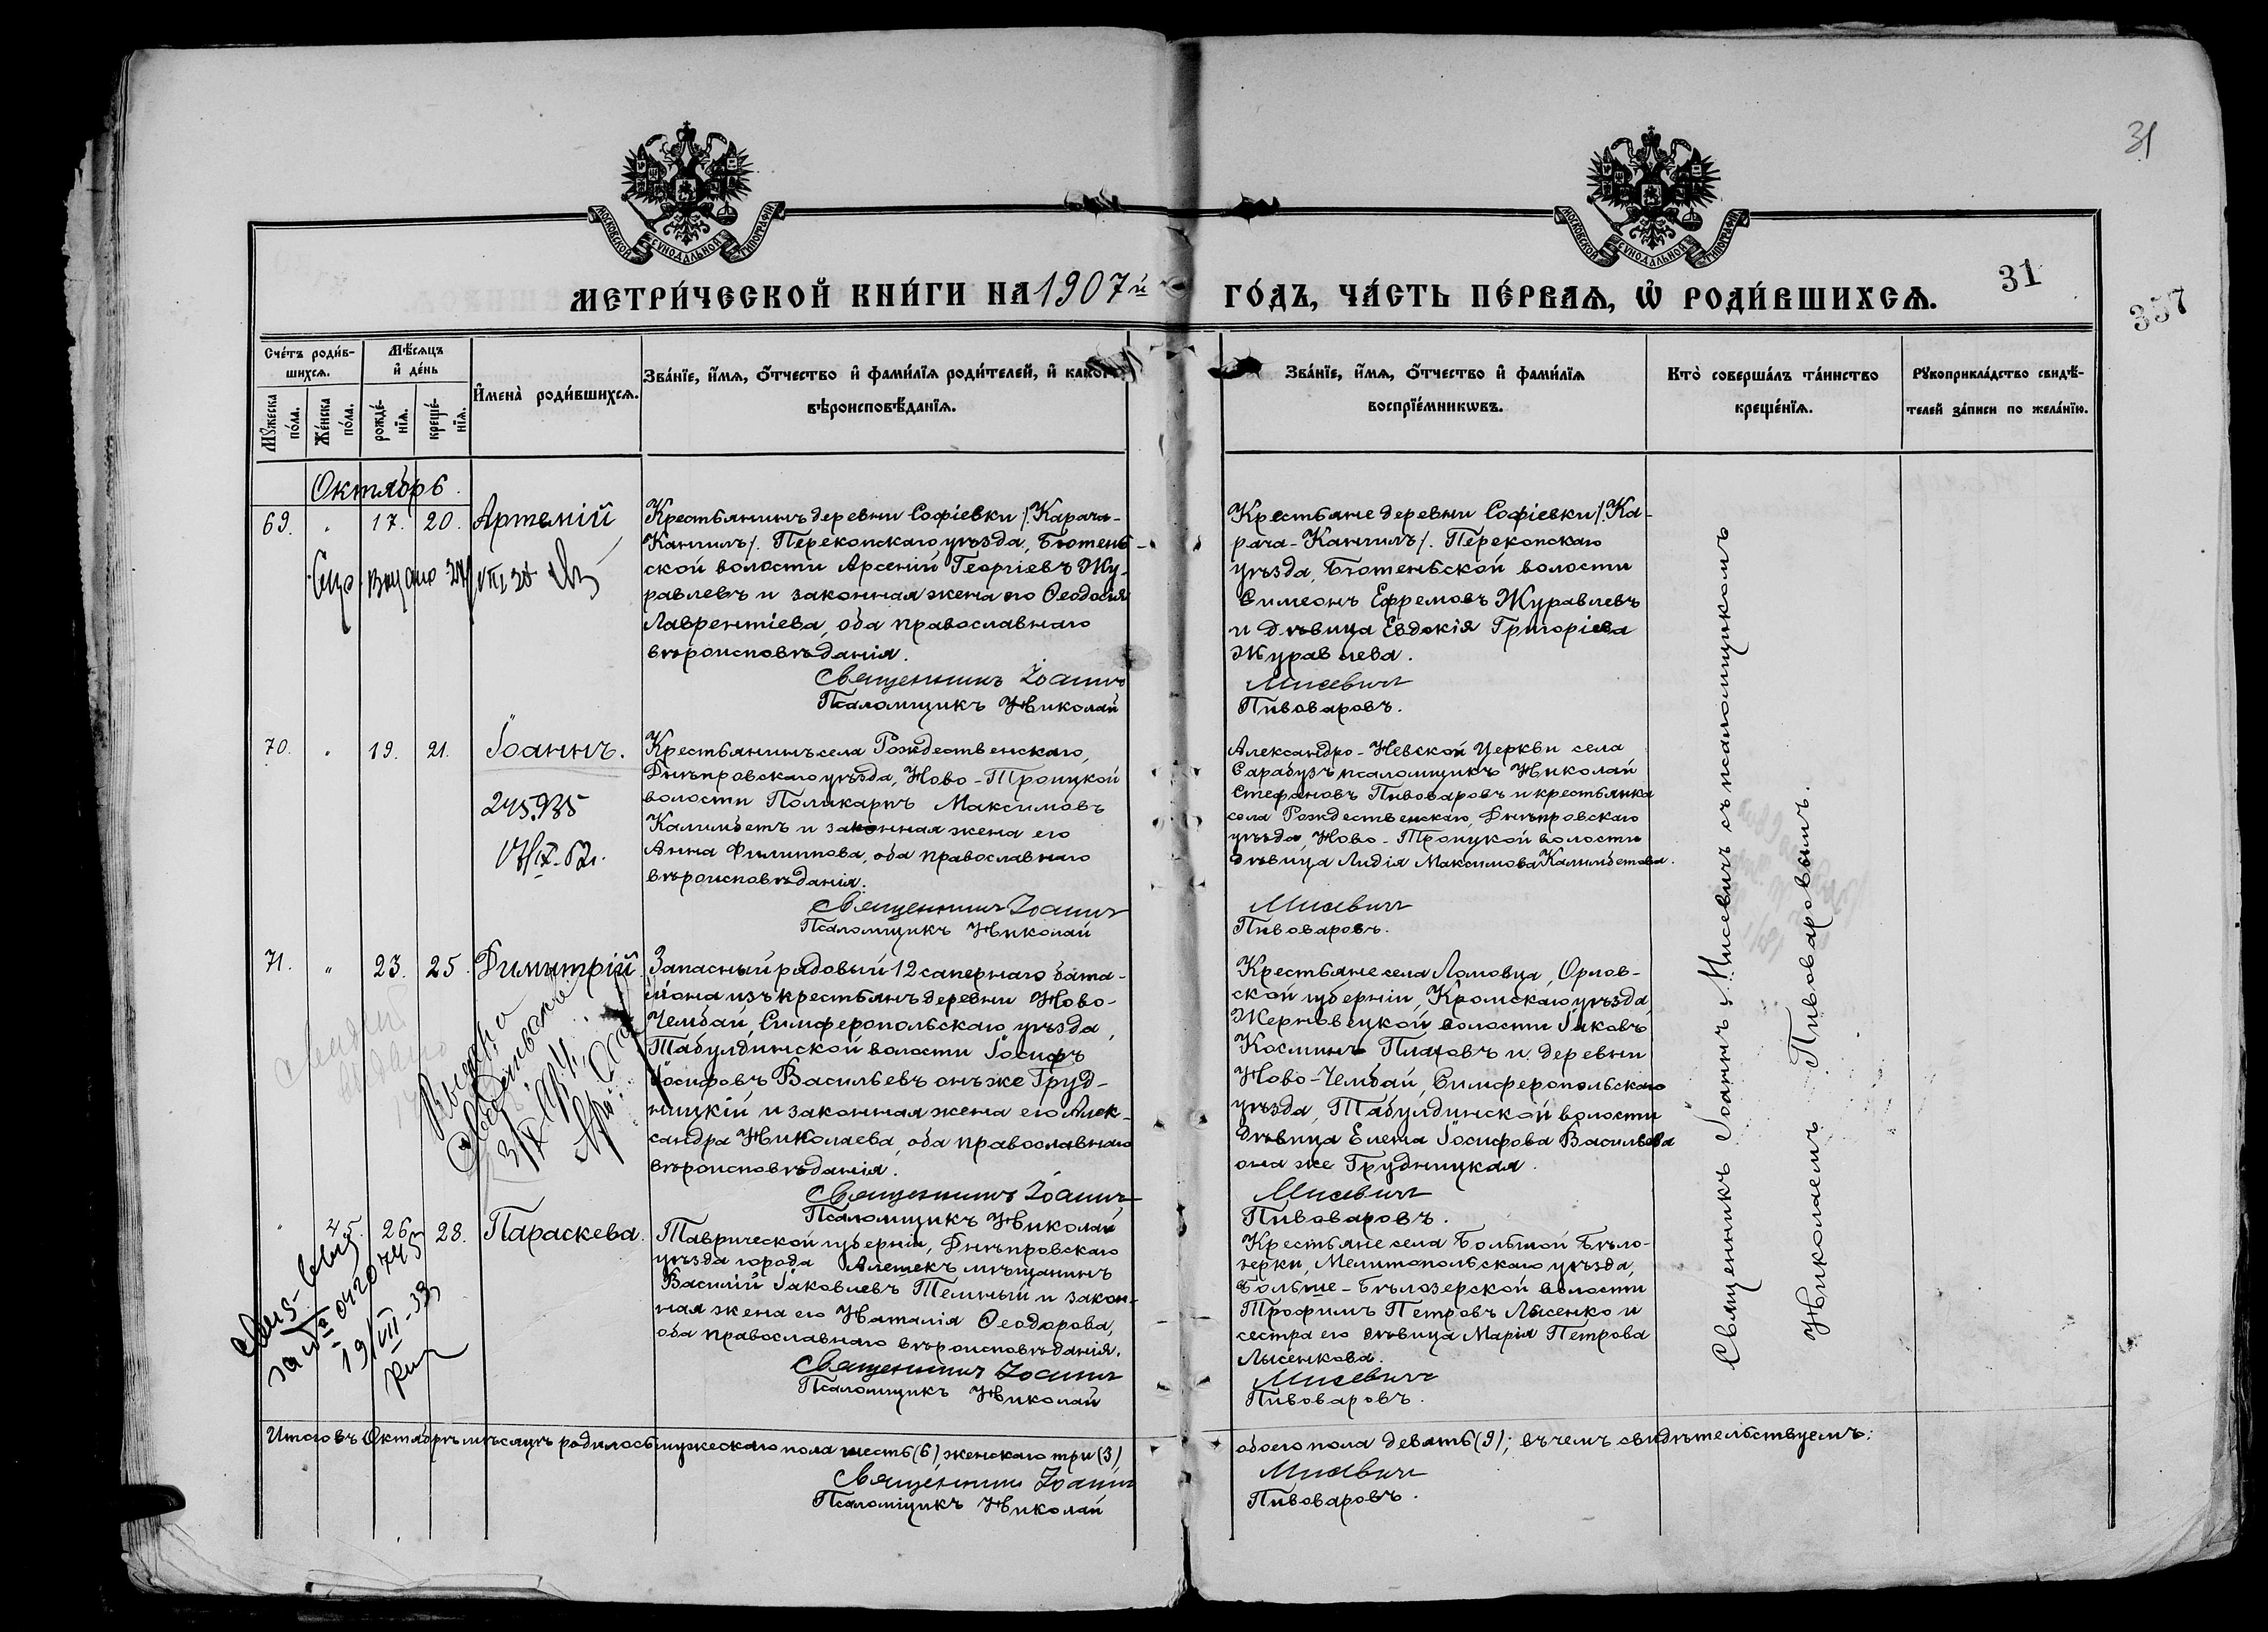 31
МОСКОВСКОЙ СУНОДАЛЬНОЙ ТИПОГРАФІИ
МОСКОВСКОЙ СУНОДАЛЬНОЙ ТИПОГРАФІИ
МЕТРИ́ЧЕСКОЙ КНИ́ГИ НА 1907й
ГО́ДЪ, ЧА́СТЬ ПЕ́РВАѦ, Ѡ҆ РОДИ́ВШИХСѦ.
31
357
Сче́тъ роди́в-
шихсѧ.
Мѣ́сѧцъ
и҆ де́нь
Мꙋ́жеска
по́ла.
Же́нска
по́ла.
рожде́-
нїѧ.
креще́-
нїѧ.
И҆мена̀ роди́вшихсѧ.
Зва́нїе, и҆́мѧ, ѻ҆́тчество и҆ фами́лїѧ роди́телей, и҆ како́гѡ
вѣроисповѣ́данїѧ.
Зва́нїе, и҆́мѧ, ѻ҆́тчество и҆ фами́лїѧ
воспрїе́мникѡвъ.
Кто̀ соверша́лъ та́инство
креще́нїѧ.
Рꙋкоприкла́дство свидѣ́-
телей за́писи по жела́нїю.
Октябрь.
69. " 17. 20. Артемій
Крестьянинъ деревни Софіевки /Карача-
Кангилъ/. Перекопскаго уѣзда, Бютень-
ской волости Арсеній Георгіевъ Жу-
равлевъ и законная жена его Ѳеодосія
Лаврентіева, оба православнаго
вѣроисповѣданія.
Священникъ Іоаннъ
Псаломщикъ Николай
Крестьяне деревни Софіевки /Ка-
рача-Кангилъ/. Перекопскаго
уѣзда, Бютеньской волости
Симеонъ Ефремовъ Журавлевъ
и дѣвица Евдокія Григоріева
Журавлева.
Мисевичъ
Пивоваровъ.
70. " 19. 21. Іоаннъ.
245.935
Крестьянинъ села Рождественскаго,
Днѣпровскаго уѣзда, Ново-Троицкой
волости Поликарпъ Максимовъ
Калимбетъ и законная жена его
Анна Филиппова, оба православнаго
вѣроисповѣданія.
Священникъ Іоаннъ
Псаломщикъ Николай
Александро-Невской Церкви села
Сарабузъ псаломщикъ Николай
Стефановъ Пивоваровъ и крестьянка
села Рождественскаго, Днѣпровскаго
уѣзда, Ново-Троицкой волости
дѣвица Лидія Максимова Калимбетова.
Мисевичъ
Пивоваровъ.
71. " 23. 25. Димитрій.
Запасный рядовый 12 сапернаго бата-
ліона изъ крестьянъ деревни Ново-
Чембай, Симферопольскаго уѣзда,
Табулдинской волости Іосифъ
Іосифовъ Васильевъ онъ же Груд-
ницкій и законная жена его Алек-
сандра Николаева, оба православнаго
вѣроисповѣданія.
Священникъ Іоаннъ
Псаломщикъ Николай
Крестьяне села Ломовца, Орлов-
ской губерніи, Кромскаго уѣзда,
Жерновецкой волости Іаковъ
Косминъ Платовъ и деревни
Ново-Чембай, Симферопольскаго
уѣзда, Табулдинской волости
дѣвица Елена Іосифова Васильева
она же Грудницкая.
Мисевичъ
Пивоваровъ.
" 45. 26. 28. Параскева.
0420745
19/VII-33
Таврической губерніи, Днѣпровскаго
уѣзда города Алешекъ мѣщанинъ
Василій Іаковлевъ Темный и закон-
ная жена его Наталія Ѳеодорова,
оба православнаго вѣроисповѣданія.
Священникъ Іоаннъ
Псаломщикъ Николай
Крестьяне села Большой Бѣло-
зерки, Мелитопольскаго уѣзда,
Больше-Бѣлозерской волости
Трофимъ Петровъ Лысенко и
сестра его дѣвица Марія Петрова
Лысенкова.
Мисевичъ
Пивоваровъ.
Священникъ Іоаннъ Мисевичъ съ псаломщикомъ
Николаемъ Пивоваровымъ.
Итого въ Октябрѣ мѣсяцѣ родилось мужескаго пола шесть (6), женскаго три (3),
обоего пола девять (9); въ чемъ свидѣтельствуемъ:
Священникъ Іоаннъ
Псаломщикъ Николай
Мисевичъ
Пивоваровъ.